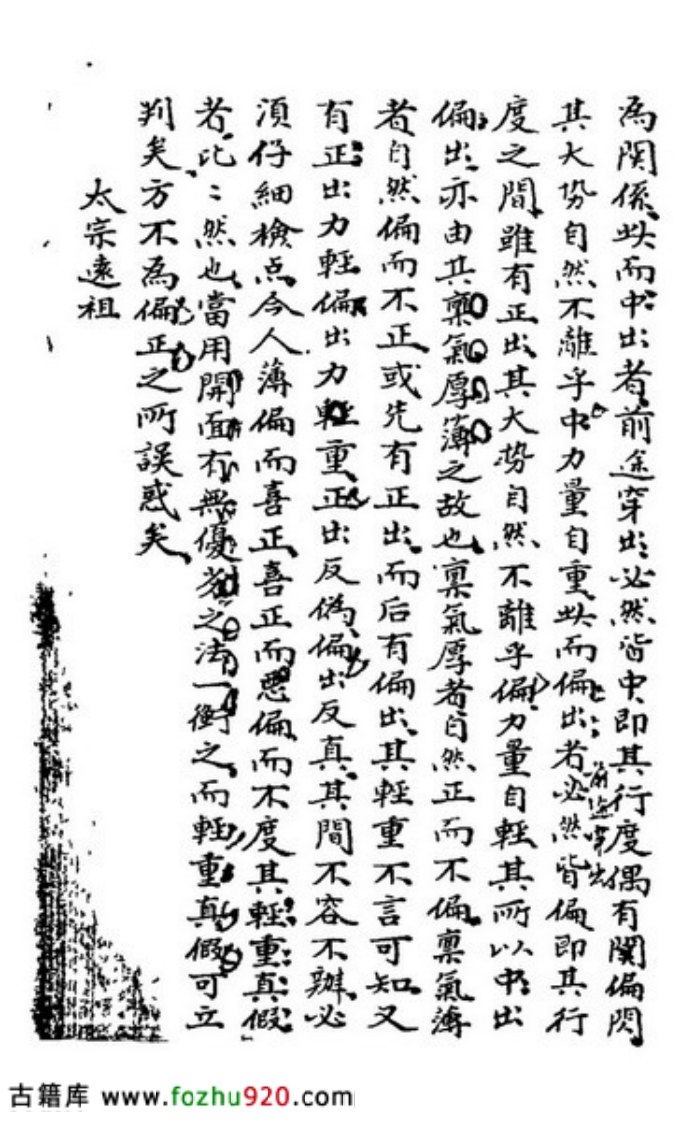 為関係此而中出者前途穿出必然皆中即其行度偶有閃偏閃
其大势自然不離乎中力量自重此而偏出者前途穿出必然皆偏即其行
度之間雖有正出其大势自然不離乎偏力量自輕其所以中出
偏出亦由其稟氣厚薄之故也稟氣厚者自然正而不偏稟氣薄
者自然偏而不正或先有正出而后有偏出其輕重不言可知又
有正出力輕偏出力重正出反偽偏出反真其間不容不辦必
須仔細檢点今人薄偏而喜正喜正而惡偏而不度其輕重真假
者比比然也當用開面有無優劣之法一衡之而輕重真假可立
判矣方不為偏正之所誤惑矣
太宗遠祖
古籍库 www.fozhu920.com